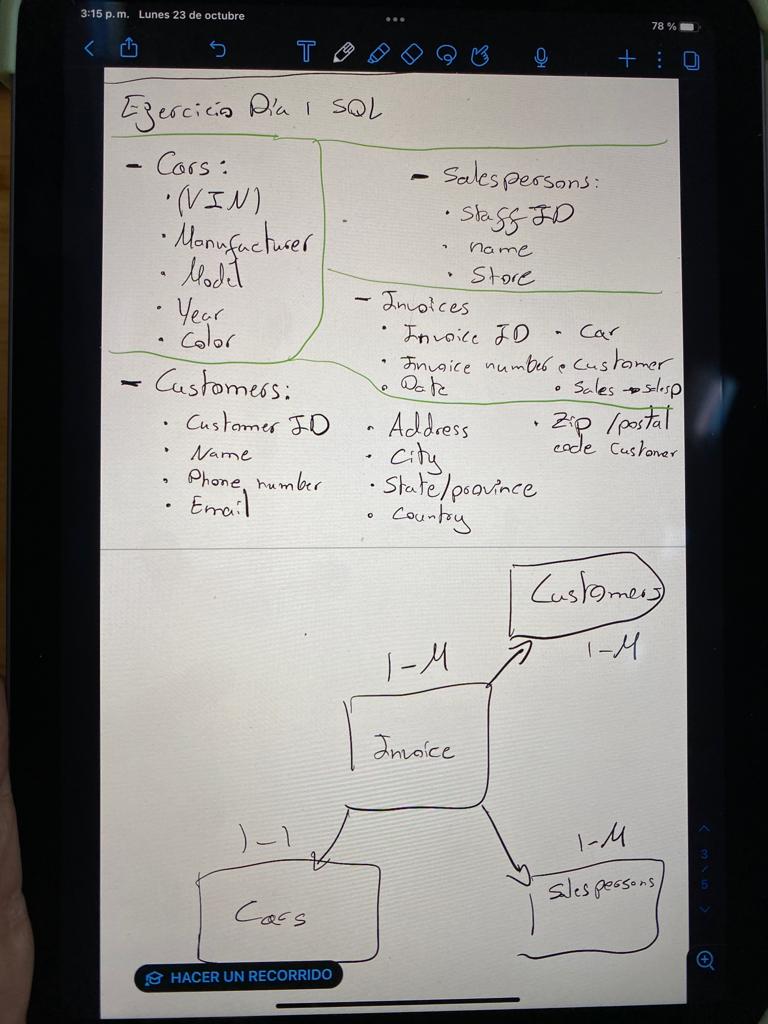 3:15 p.m. Lunes 23 de octubre
78 %
T
Ejercicio Día 1 SQL
- Cars:
· (VIN)
· Manufacturer
· Model
· Year
· Color
- Salespersons:
· Staff ID
· name
· Store
- Invoices
· Invoice ID
· Invoice number
· Date
· Car
· Customer
· Sales → salesp
- Customers:
· Customer ID
· Name
· Phone number
· Email
· Address
· City
· State/province
· Country
· Zip /postal
code Customer
Customers
1-M
1-M
Invoice
1-1
1-M
Cars
Salespersons
3
/
5
HACER UN RECORRIDO